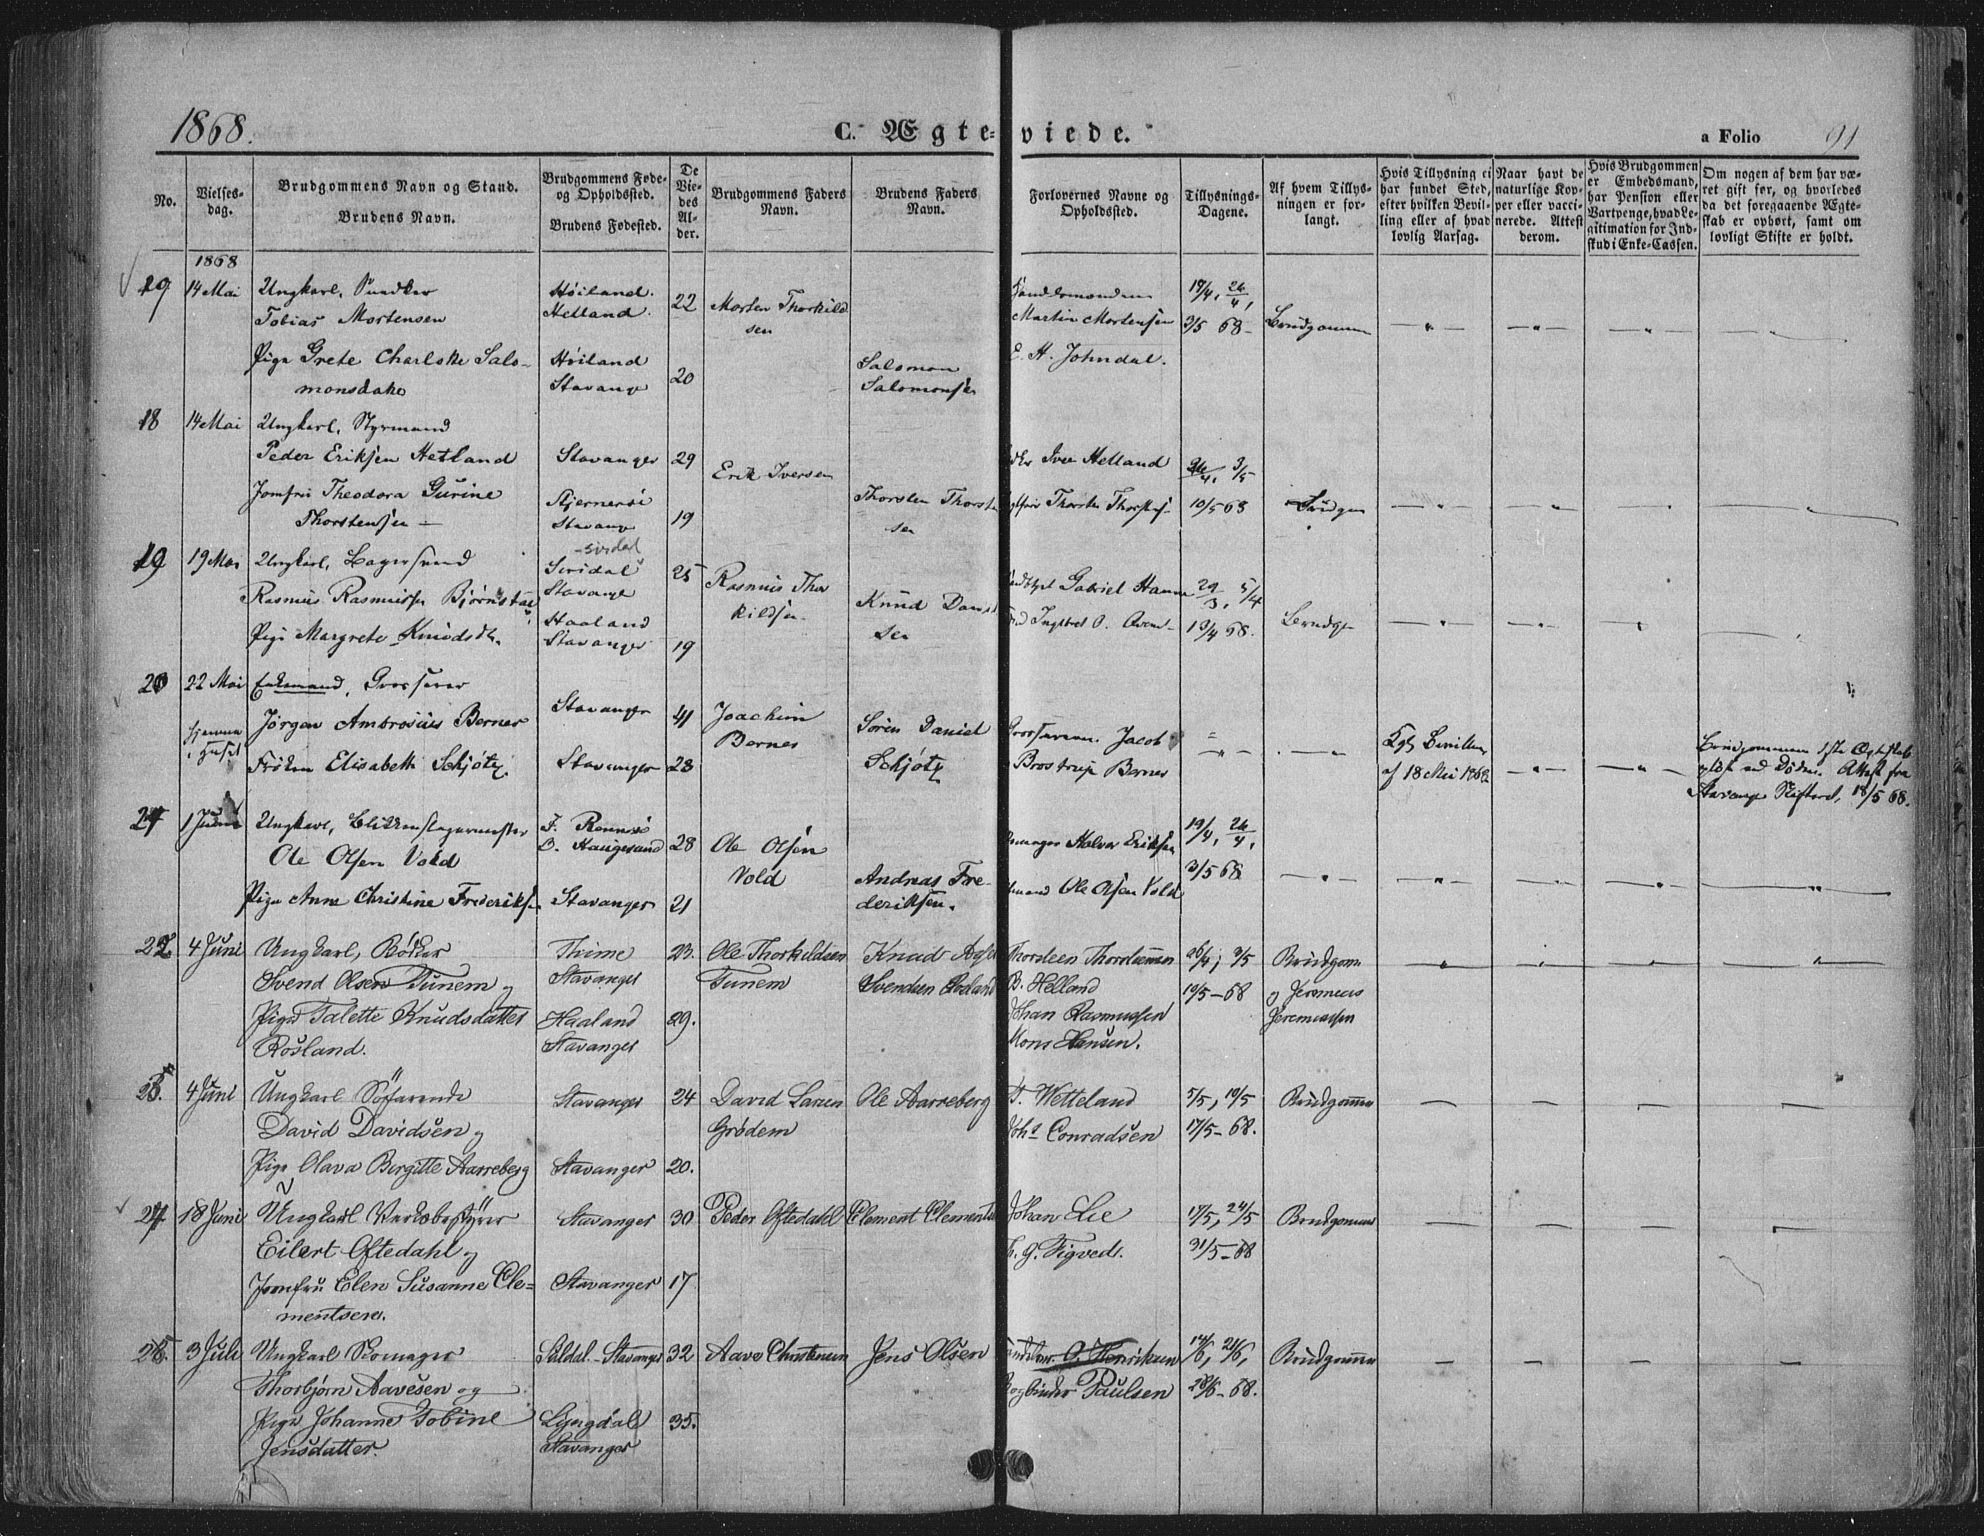 1868.
C. Ægteviede.
a Folio 91
No.
Vielses-
dag.
Brudgommens Navn og Stand.
Brudens Navn.
Brudgommens Føde-
og Opholdssted.
Brudens Fødested.
De
Vie-
des
Al-
der.
Brudgommens Faders
Navn.
Brudens Faders
Navn.
Forlovernes Navne og
Opholdssted.
Tillysnings-
Dagene.
Af hvem Tillys-
ningen er for-
langt.
Hvis Tillysning ei
har fundet Sted,
efter hvilken Bevil-
ling eller af hvad
lovlig Aarsag.
Naar havt de
naturlige Kop-
per eller vacci-
nerede. Attest
derom.
Hvis Brudgommen
er Embedsmand,
har Pension eller
Vartpenge, hvad Le-
gitimation for Ind-
skud i Enke-Cassen.
Om nogen af dem har væ-
ret gift før, og hvorledes
da det foregaaende Ægte-
skab er ophørt, samt om
lovligt Skifte er holdt.
1868
14 Mai Ungkarl,
Tobias Mortensen
Høiland
Helland 22 Morten Thorkild
sen
Martin Mortensen
3/5 68 Brudgommen
Pige Grete Charlotte Salo-
monsdatter
Høiland
Stavanger 20
Salomon
Salomonsen
E. H. Johndal.
18 14 Mai Ungkarl, Styrmand
Peder Eriksen Hetland Stavanger 29 Erik Iversen
Iver Helland
Jomfru Theodora Gurine
Thorstensen
Stjernerøi
Stavanger 19
Thorsten Thorsten
sen
Thorsten Thorsten
10/5 68
19 19 Mai Ungkarl,
Rasmus Rasmussen Bjørnstad
Sirdal
Stavanger 25 Rasmus Thor
kildsen
Gabriel Hanne
29/3, 5/4
Pige Margrete Knudsdtr.
Haaland
Stavanger 19
Knud Daniel
sen
13/4 68. Brudg
20 22 Mai Enkemand, Grosserer
Jørgen Ambrosius Berner Stavanger 41 Joachim
Berner
hjemme
i Huset
Frøken Elisabeth Schjøtz Stavanger 28
Søren Daniel
Schjøtz
Jacob
Brostrup Berner
Kgl. Bevilling
af 18 Mai 1868
Brudgommens 1ste Ægteskab
opløst ved Døden. Attest fra
Stavanger Skifteret, 18/5 68.
21 1 Juni Ungkarl, Blikkenslagermester
Ole Olsen Vold
F. Rennesø
O. Haugesund 28 Ole Olsen
Vold
Halvor Eriksen
19/4, 26/4,
3/5 68
Pige Anne Christine Frederiksen Stavanger 21
Andreas Fre-
deriksen.
Ole Olsen Vold
22 4 Juni Ungkarl, Bødker
Svend Olsen Tunem og
Thime
Stavanger 23. Ole Thorkildsen
Tunem
Knud
Svendsen Rosland
B. Helland
26/4, 3/5
10/5-68 Brudgom
og Jeremias
Jeremiassen
Pige Talette Knudsdatter
Rosland.
Haaland
Stavanger 29.
Johan Rasmussen
Mons Hansen.
23. 4 Juni Ungkarl Søfarende
David Davidsen og Stavanger 24 David Larsen
Grødem Ole Aarreberg
T. Wetteland
Johs Conradsen
3/5, 10/5
17/5-68. Brudgommen
Pige Olava Birgitte Aarreberg Stavanger 20.
24 18 Juni Ungkarl Værksbestyrer
Eilert Oftedahl og Stavanger 30 Peder Oftedahl Clement Clementsen
Johan Lie
Tigved.
17/5, 24/5
31/5-68 Brudgommen
Jomfru Elen Susanne Cle-
mentsen. Stavanger 17
25. 3 Juli Ungkarl Skomager
Thorbjørn Aavesen og
Suldal - Stavanger 32 Aave Christensen Jens Olsen
O. Henriksen
Bogbinder Paulsen
14/6, 21/6,
28/6-68. Brudgommen
Pige Johanne Tobine
Jensdatter.
Lyngdal
Stavanger 35.